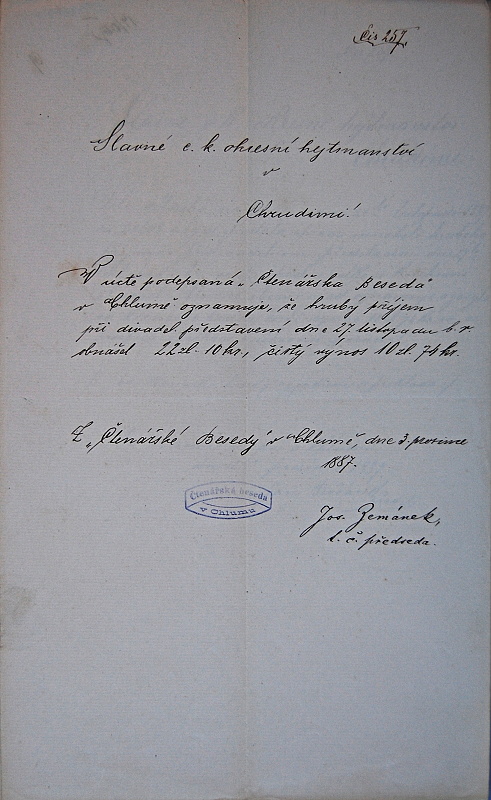 Čís 257.
Slavné c. k. okresní hejtmanství
v
Chrudimi!
V úctě podepsaná „Čtenářska Beseda"
v Chlumě oznamuje, že hrubý příjem
při divadel. představení dne 27. listopadu b. r.
obnášel 22 zl. 10 kr., čistý výnos 10 zl. 74 kr.
Z „Čtenářské Besedy" v Chlumě, dne 3. prosince
1887.
Čtenářská beseda
v Chlumu
Jos. Zemánek,
t. č. předseda.